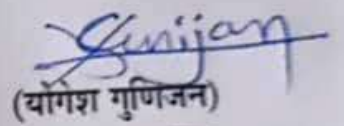 Gunijan
(योगेश गुणिजन)